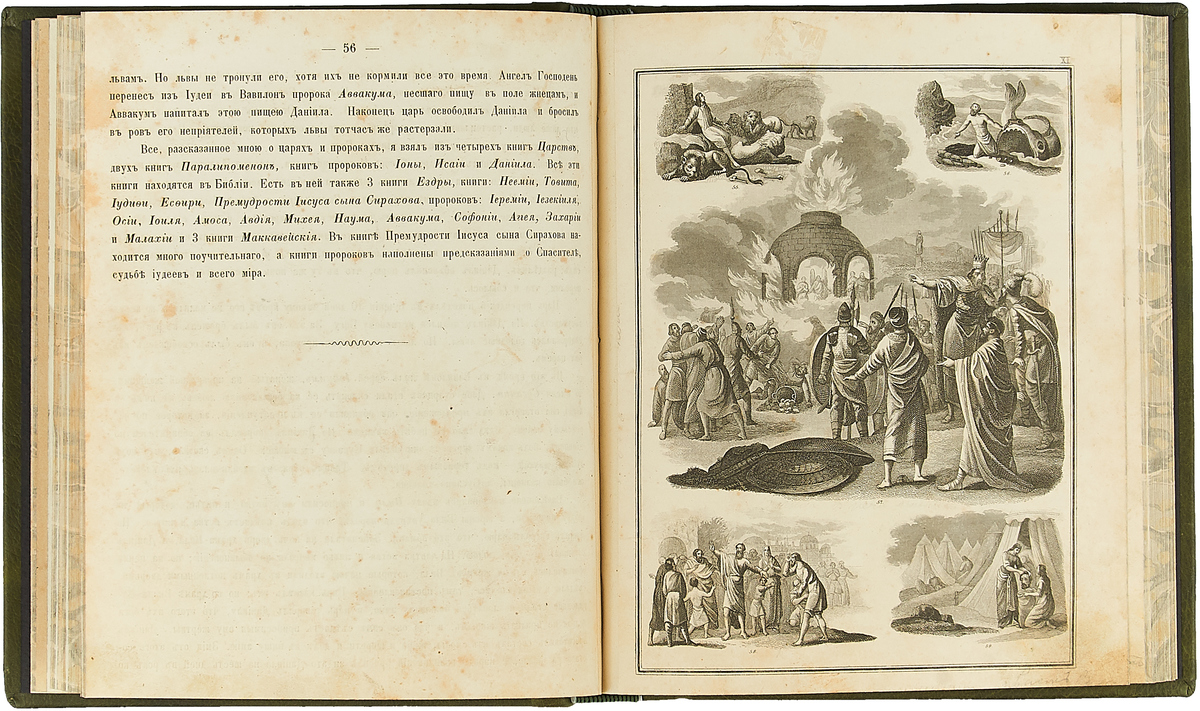 — 56 —
львамъ. Но львы не тронули его, хотя ихъ не кормили все это время. Ангелъ Господень
перенесъ изъ Іудеи въ Вавилонъ пророка Аввакума, несшаго пищу въ поле жнецамъ, и
Аввакумъ напиталъ этою пищею Даніила. Наконецъ царь освободилъ Даніила и бросилъ
въ ровъ его непріятелей, которыхъ львы тотчасъ же растерзали.
Все, разсказанное мною о царяхъ и пророкахъ, я взялъ изъ четырехъ книгъ Царствъ,
двухъ книгъ Паралипоменонъ, книгъ пророковъ: Іоны, Исаіи и Даніила. Всѣ эти
книги находятся въ Библіи. Есть въ ней также 3 книги Ездры, книги: Нееміи, Товита,
Іудиѳи, Есѳири, Премудрости Іисуса сына Сирахова, пророковъ: Іереміи, Іезекіиля,
Осіи, Іоиля, Амоса, Авдія, Михея, Наума, Аввакума, Софоніи, Агея, Захаріи
и Малахіи и 3 книги Маккавейскія. Въ книгѣ Премудрости Іисуса сына Сирахова на-
ходится много поучительнаго, а книги пророковъ наполнены предсказаніями о Спасителѣ,
судьбѣ іудеевъ и всего міра.
XI
55.
56.
57.
58.
59.